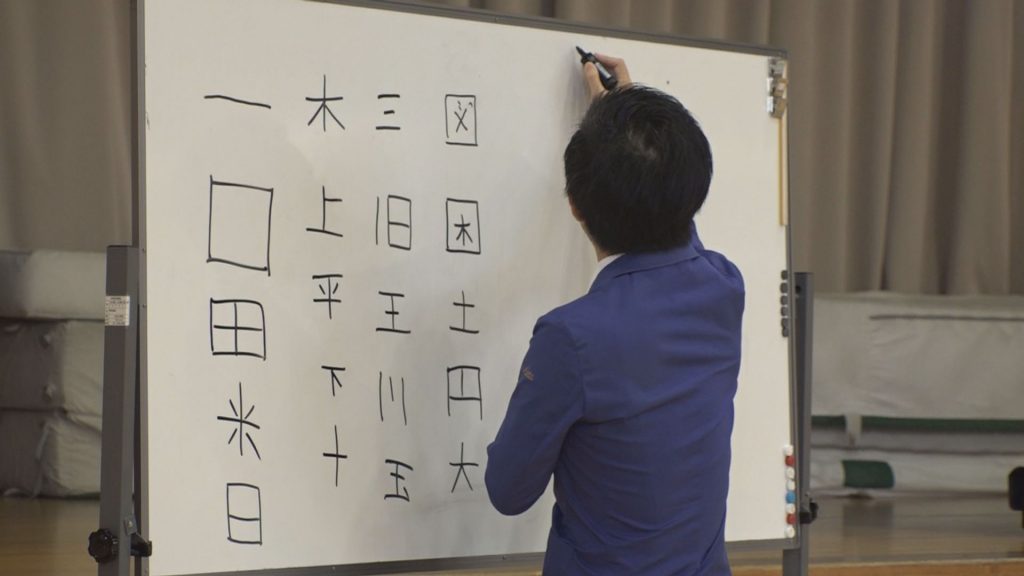 一口田米日
木上平下十
三旧王川玉
図困土円大